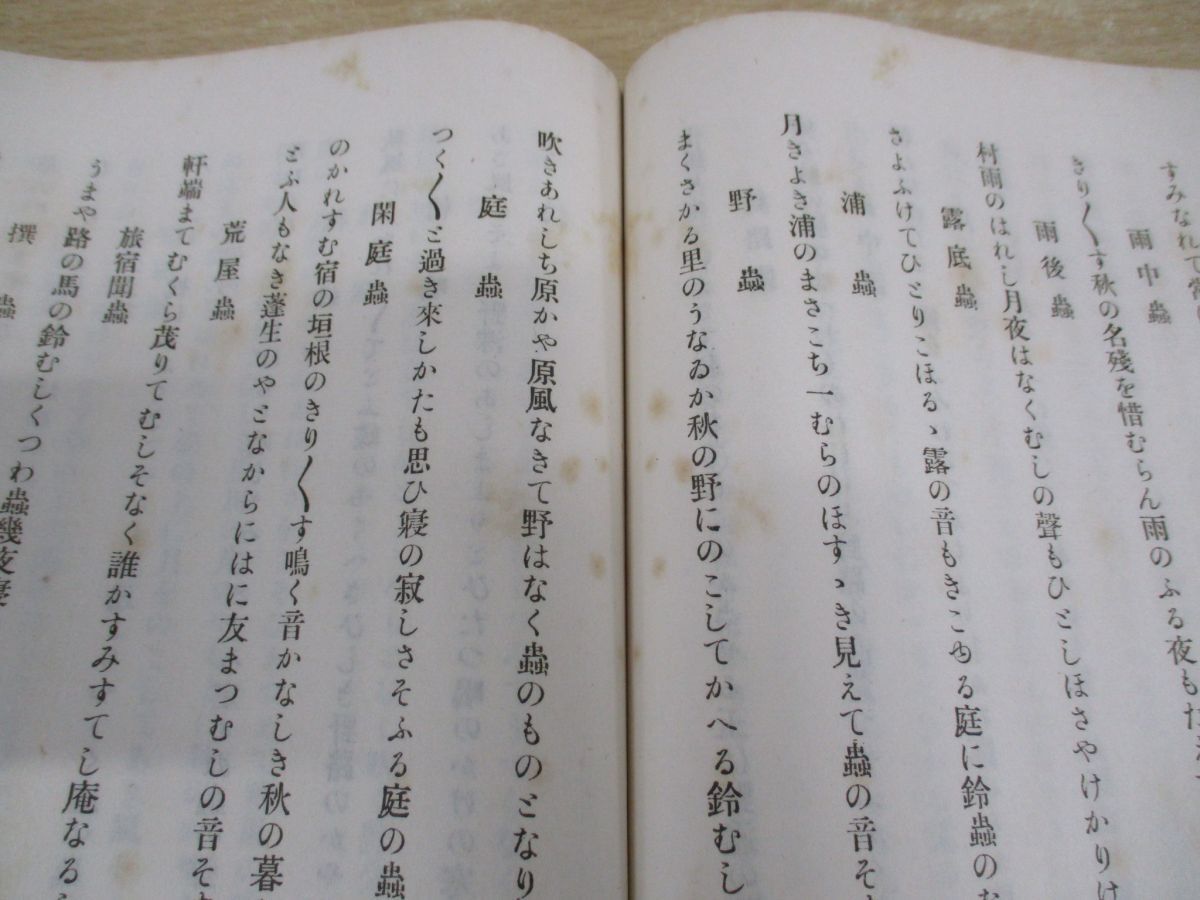 すみなれて
雨中蟲
きり〳〵す秋の名殘を惜むらん雨のふる夜も
雨後蟲
村雨のはれし月夜はなくむしの聲もひとしほさやけかりけ
露底蟲
さよふけてひとりこほるゝ露の音もきこゆる庭に鈴蟲のな
浦蟲
月きよき浦のまさこち一むらのほすゝき見えて蟲の音そ
野蟲
まくさかる里のうなゐか秋の野にのこしてかへる鈴むし
吹きあれしち原かや原風なきて野はなく蟲のものとなり
庭蟲
つく〳〵と過き來しかたも思ひ寢の寂しさそふる庭の蟲
閑庭蟲
のかれすむ宿の垣根のきり〳〵す鳴く音かなしき秋の暮
とふ人もなき蓬生のやとなからにはに友まつむしの音そ
荒屋蟲
軒端まてむくら茂りてむしそなく誰かすみすてし庵なる
旅宿聞蟲
うまや路の馬の鈴むしくつわ蟲幾夜
撰蟲